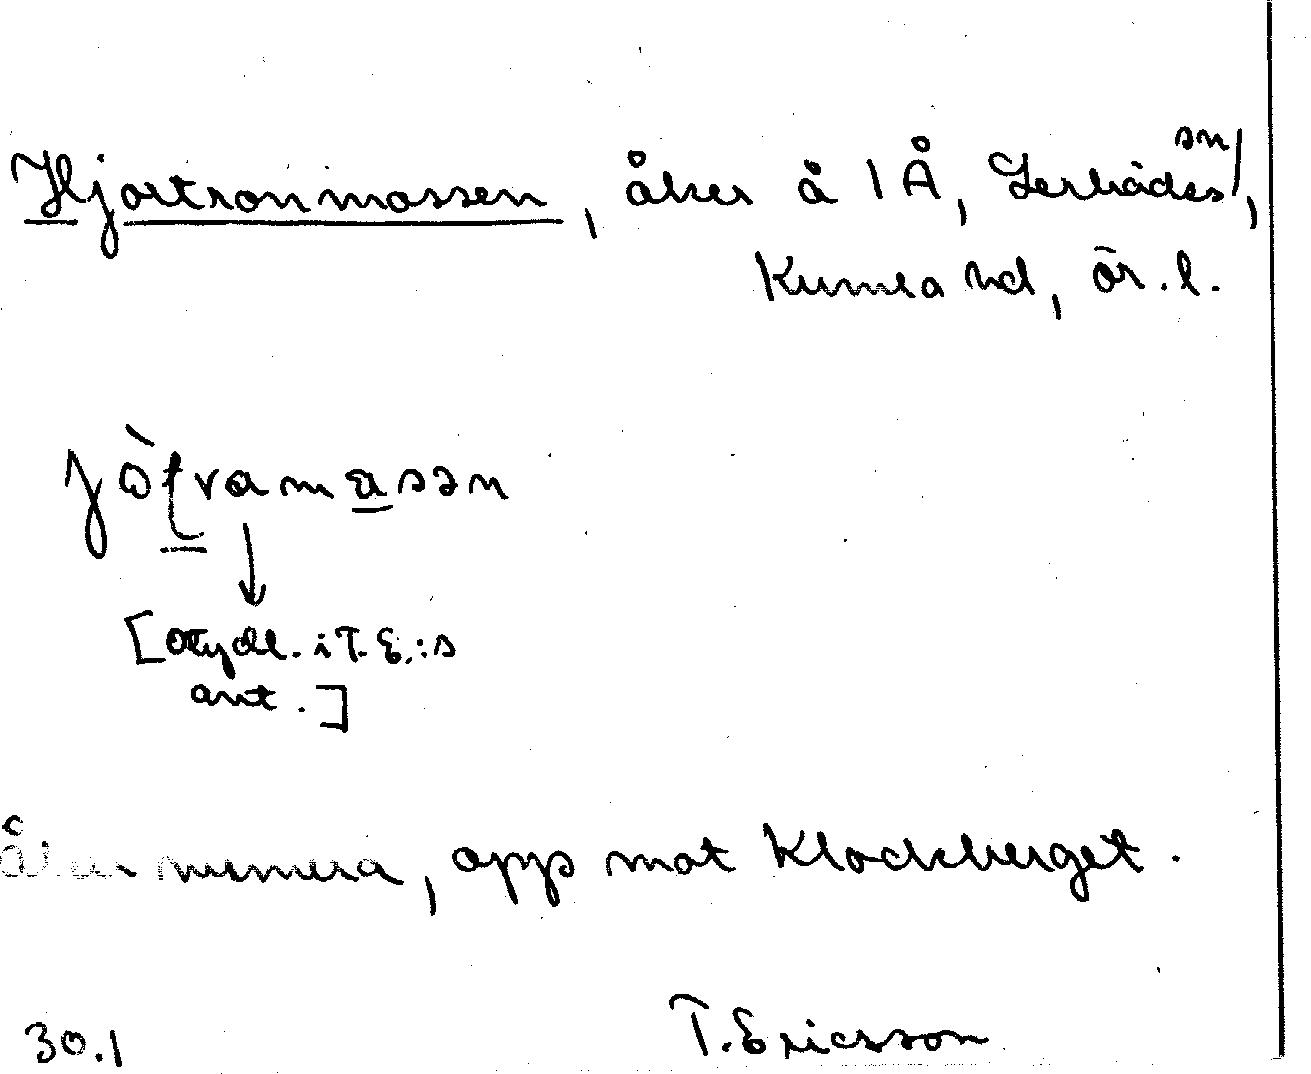 Hjortronmossen, åker å 1 Å, Lerbäcks sn,
Kumla hd, Ör. l.
jòʈvamasən
[otydl. i T.E.:s
ant.]
Åker numera, upp mot Klockberget.
30.1 T. Ericsson